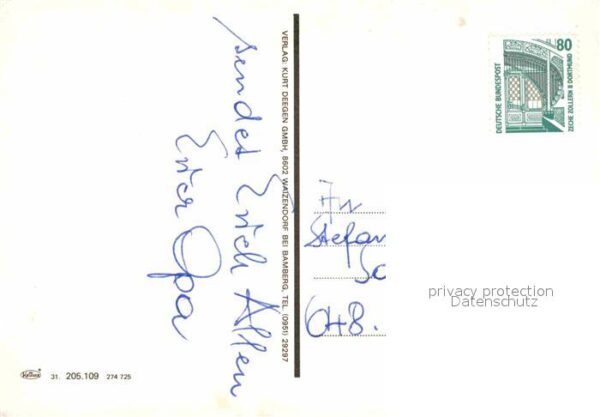 sendet Euch Allen
Euer Opa
VERLAG: KURT DEEGEN GMBH, 8602 WAIZENDORF BEI BAMBERG, TEL. (0951) 29297
80
DEUTSCHE BUNDESPOST
ZECHE ZOLLERN II DORTMUND
Stefan
648.
privacy protection
Datenschutz
31. 205.109 274 725